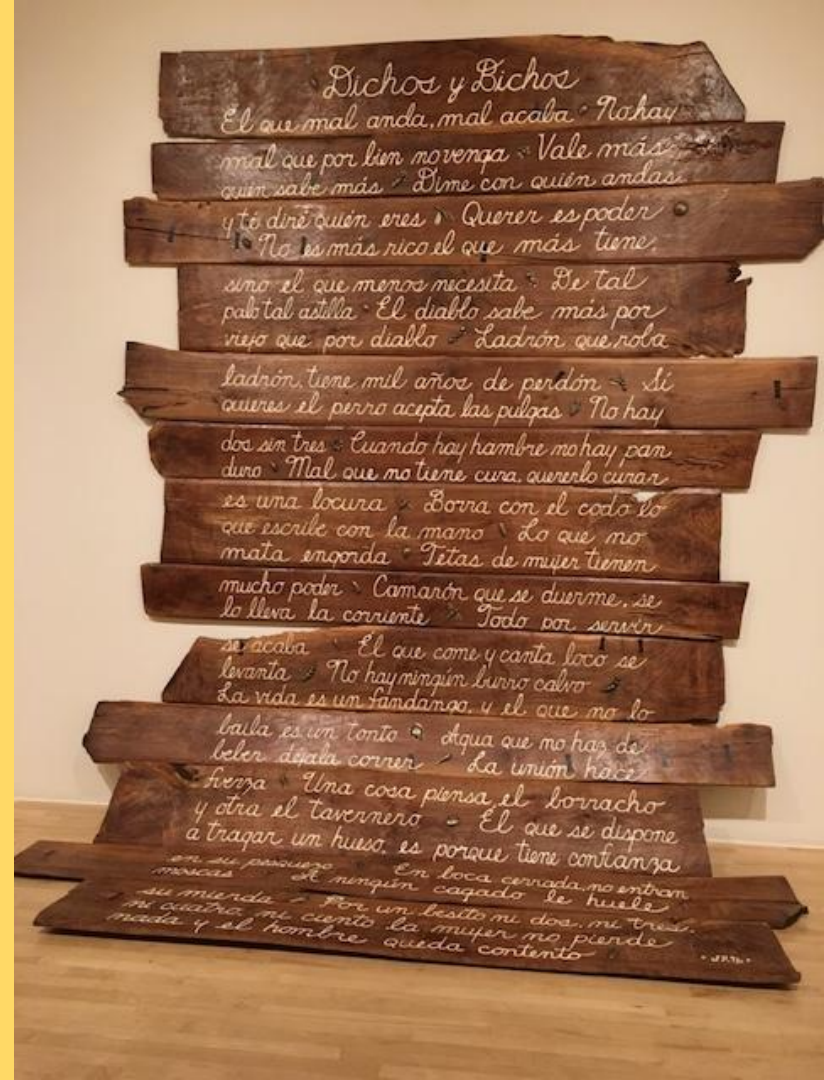 Dichos y Bichos
El que mal anda, mal acaba No hay
mal que por bien no venga Vale más
quién sabe más Dime con quién andas
y té diré quién eres Querer es poder
No es más rico el que más tiene,
sino el que menos necesita De tal
palo tal astilla El diablo sabe más por
viejo que por diablo Ladrón que roba
ladrón, tiene mil años de perdón Si
quieres el perro acepta las pulgas No hay
dos sin tres Cuando hay hambre no hay pan
duro Mal que no tiene cura, quererlo curar
es una locura Borra con el codo lo
que escribe con la mano Lo que no
mata engorda Tetas de mujer tienen
mucho poder Camarón que se duerme, se
lo lleva la corriente Todo por servir
se acaba El que come y canta loco se
levanta No hay ningún burro calvo
La vida es un fandango, y el que no lo
baila es un tonto Agua que no haz de
beber déjala correr La unión hace
fuerza Una cosa piensa el borracho
y otra el tavernero El que se dispone
a tragar un hueso, es porque tiene confianza
en su pescuezo En boca cerrada, no entran
moscas A ningún cagado le huele
su mierda Por un besito ni dos, ni tres,
ni cuatro, ni ciento la mujer no pierde
nada y el hombre queda contento